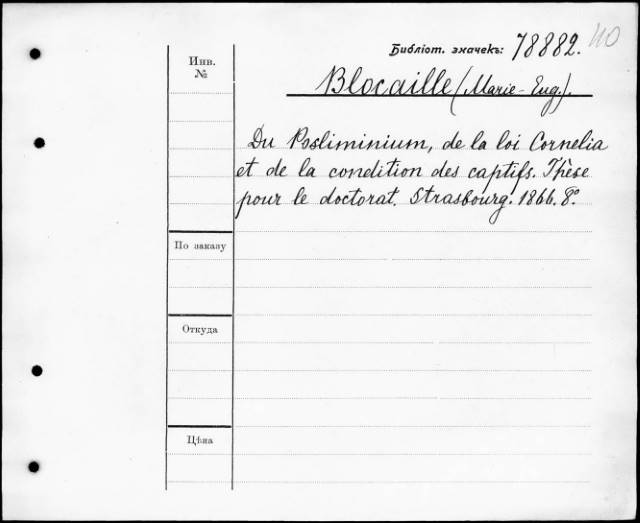 Библіот. значекъ: 78882. 40
Инв.
№
Blocaille (Marie-Eug.).
Du Posliminium, de la loi Cornelia
et de la condition des captifs. Thèse
pour le doctorat. Strasbourg. 1866. 8º
По заказу
Откуда
Цѣна